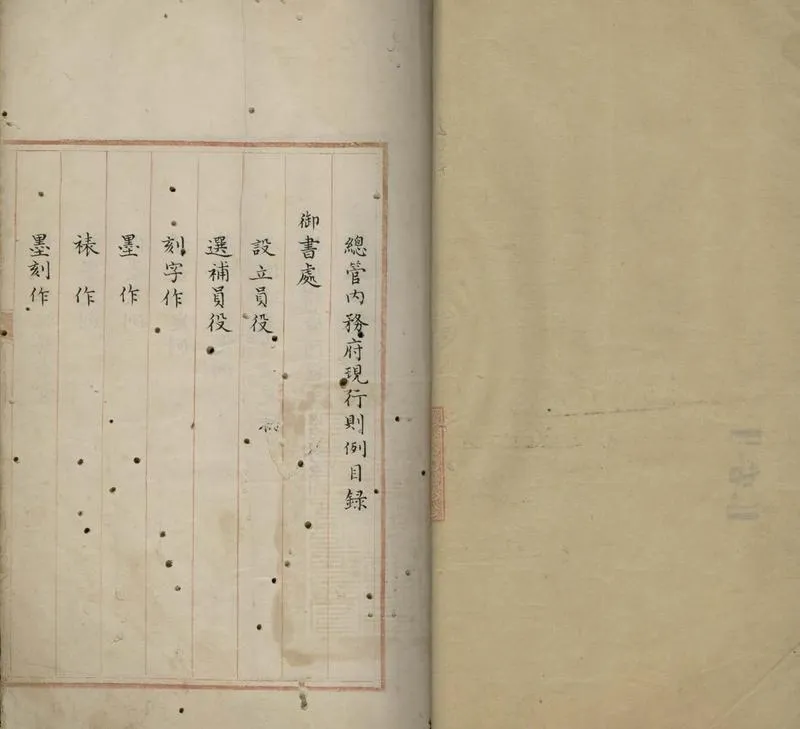 總管内務府現行則例目録
御書處
設立員役
選補員役
刻字作
墨作
裱作
墨刻作